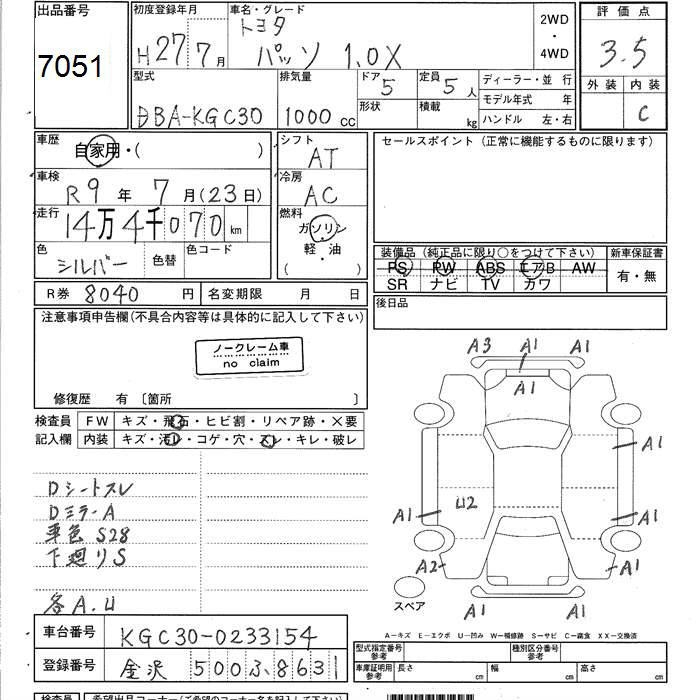 出品番号
7051
初度登録年月
H27年7月
車名・グレード
トヨタ
パッソ 1.0X
2WD
・
4WD
評価点
3.5
外装 内装
C
型式
DBA-KGC30
排気量
1000 cc
ドア
5
形状
定員
5人
積載
kg
ディーラー・並行
モデル年式 年
ハンドル 左・右
車歴
自家用・( )
車検
R9年7月(23日)
走行
14万4千070km
色
シルバー
色替
色コード
シフト
AT
冷房
AC
燃料
ガソリン
軽・油
( )
セールスポイント (正常に機能するものに限ります)
装備品 (純正品に限り○をつけて下さい)
PS PW ABS エアB AW
SR ナビ TV カワ
新車保証書
有・無
後日品
R券 8040円
名変期限 月 日
注意事項申告欄(不具合内容等は具体的に記入して下さい)
ノークレーム車
no claim
修復歴 有 〔箇所 〕
検査員
記入欄
FW キズ・飛石・ヒビ割・リペア跡・×要
内装 キズ・汚レ・コゲ・穴・スレ・キレ・破レ
Dシートスレ
Dミラー A
車色 S28
下廻りS
各A.U
A3 A1 A1
A1
A1
A1 U2 A1
A2 A1
A1 A1
スペア
A−キズ E−エクボ U−凹み W−補修跡 S−サビ C−腐食 XX−交換済
車台番号
KGC30-0233154
登録番号
金沢 500ふ8631
型式指定番号
参考
種別区分番号
参考
車庫証明用
参考
長さ cm
幅 cm
高さ cm
検査員
希望出品コーナー(ご希望のコーナー名を記入下さい)